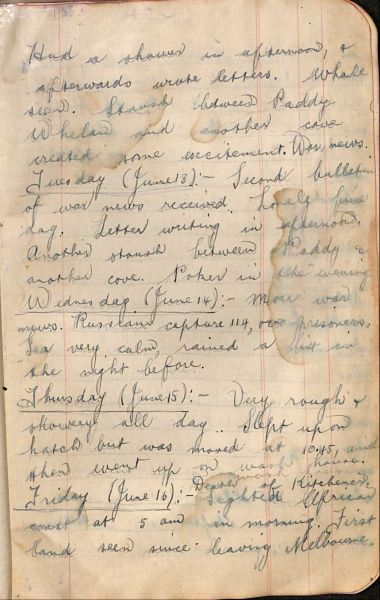 Had a shower in afternoon, &
afterwards wrote letters. Whale
seen. Stoush between Paddy
Whelan and another cove
created some excitement. War news.
Tuesday (June 13):- Second bulletin
of war news received. Lovely fine
day. Letter writing in afternoon.
Another stoush between Paddy &
another cove. Poker in the evening.
Wednesday (June 14):- More war
news. Russians capture 114,000 prisoners.
Sea very calm, rained a bit on
the night before.
Thursday (June 15):- Very rough &
showery all day. Slept upon
hatch but was moved at 10.45, and
then went up on wash house.
Death of Kitchener.
Friday (June 16):- Sighted African
coast at 5 am in morning. First
land seen since leaving Melbourne.